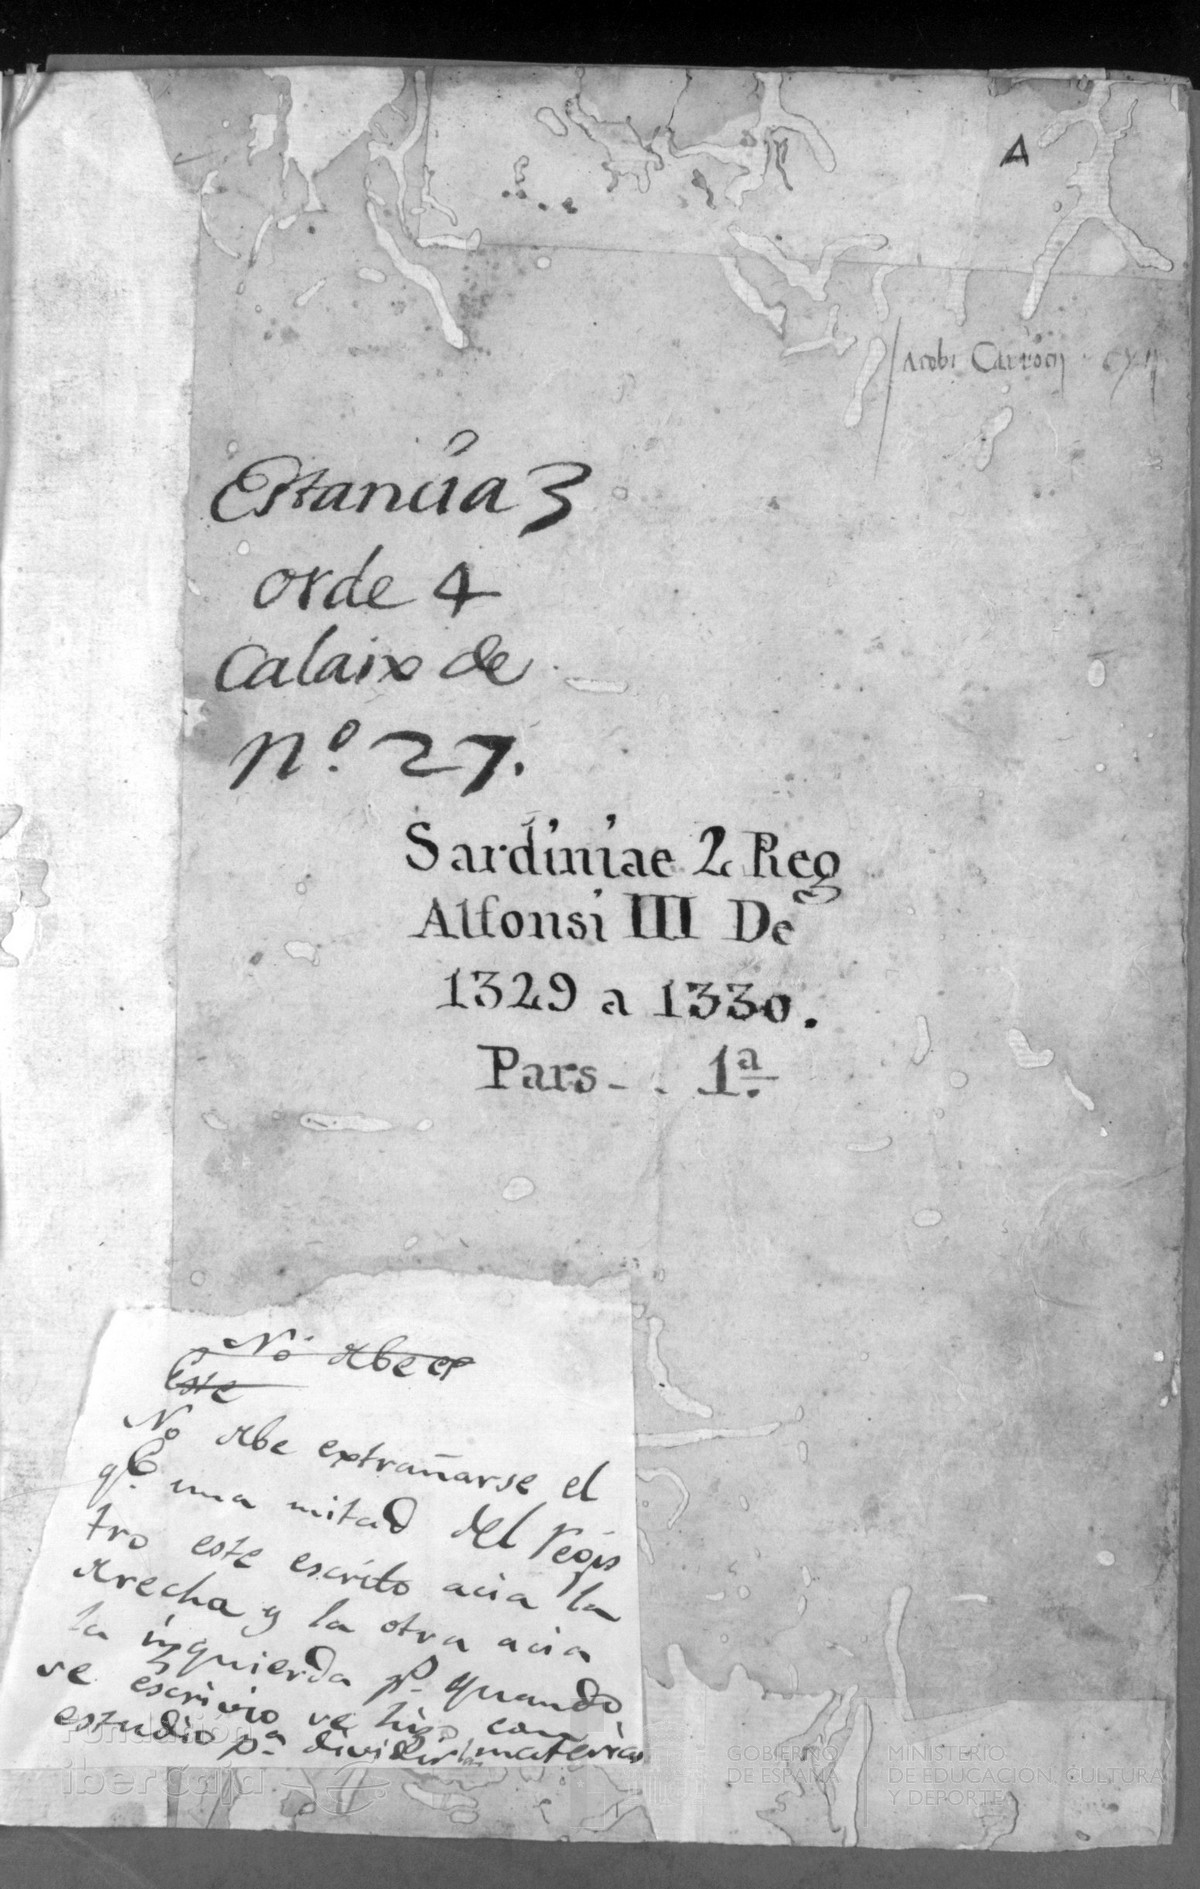 A
Jacobi Carrocii
Estancia 3
orde 4
Calaix de
nº. 27.
Sardiniae 2 Reg
Alfonsi III De
1329 a 1330.
Pars - . 1ª.
No debe el
Este
No debe extrañarse el
qe. una mitad del regis
tro este escrito acia la
derecha y la otra acia
la izquierda pr. quando
se escrivio se hizo con
estudio pa. dividir las materias
Fundación
iberCaja
GOBIERNO
DE ESPAÑA
MINISTERIO
DE EDUCACIÓN, CULTURA
Y DEPORTE